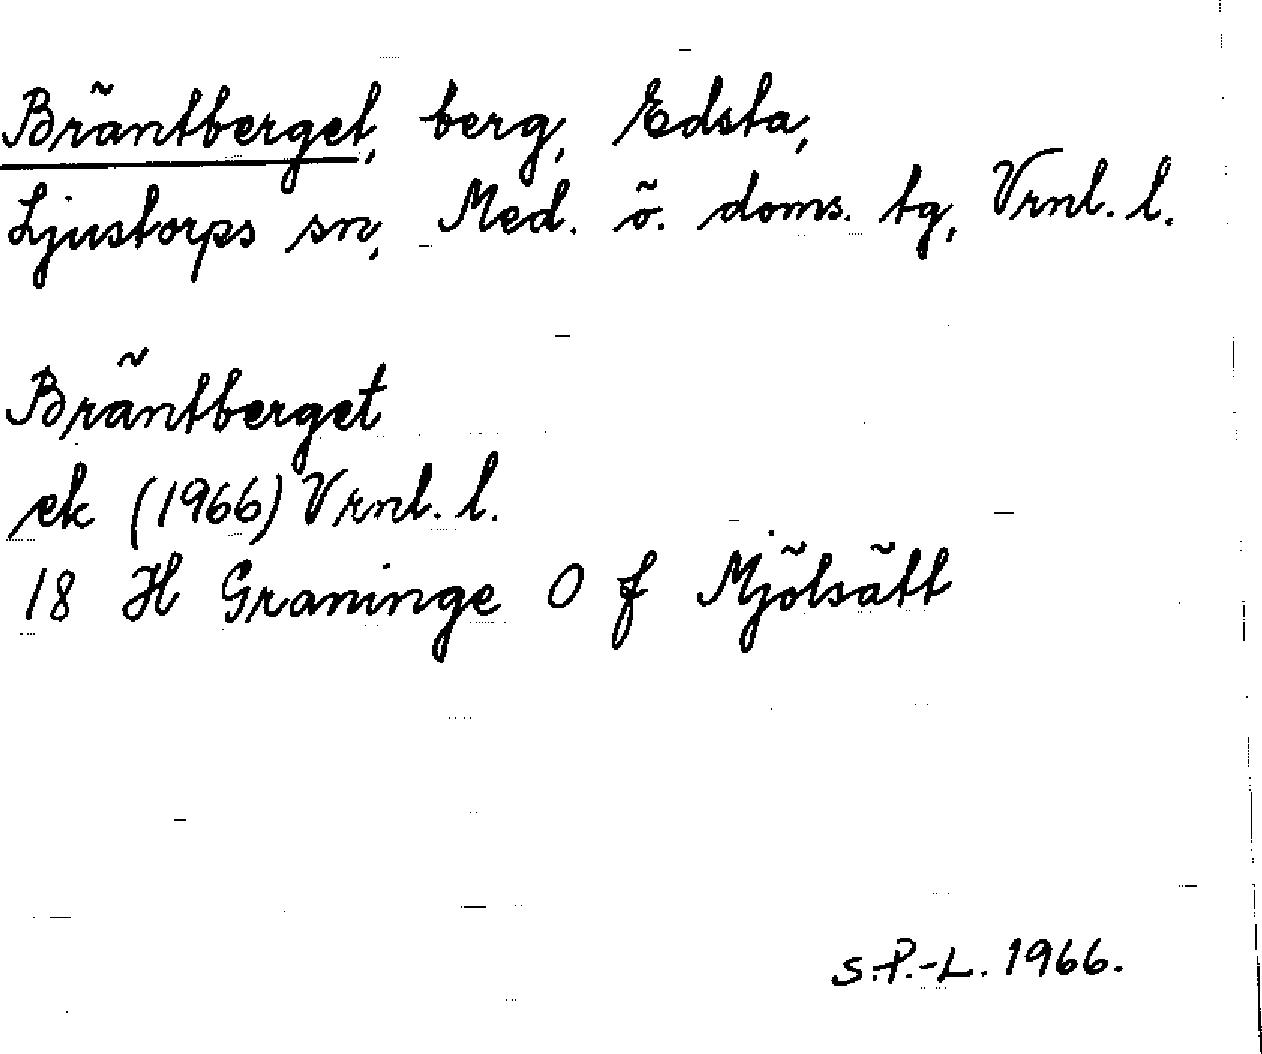 Bräntberget, berg, Edsta,
Ljustorps sn, Med. ö. doms. tg, Vrnl. l.
Bräntberget
ek (1966) Vrnl. l.
18 H Graninge O f Mjölsätt
S.P.-L. 1966.